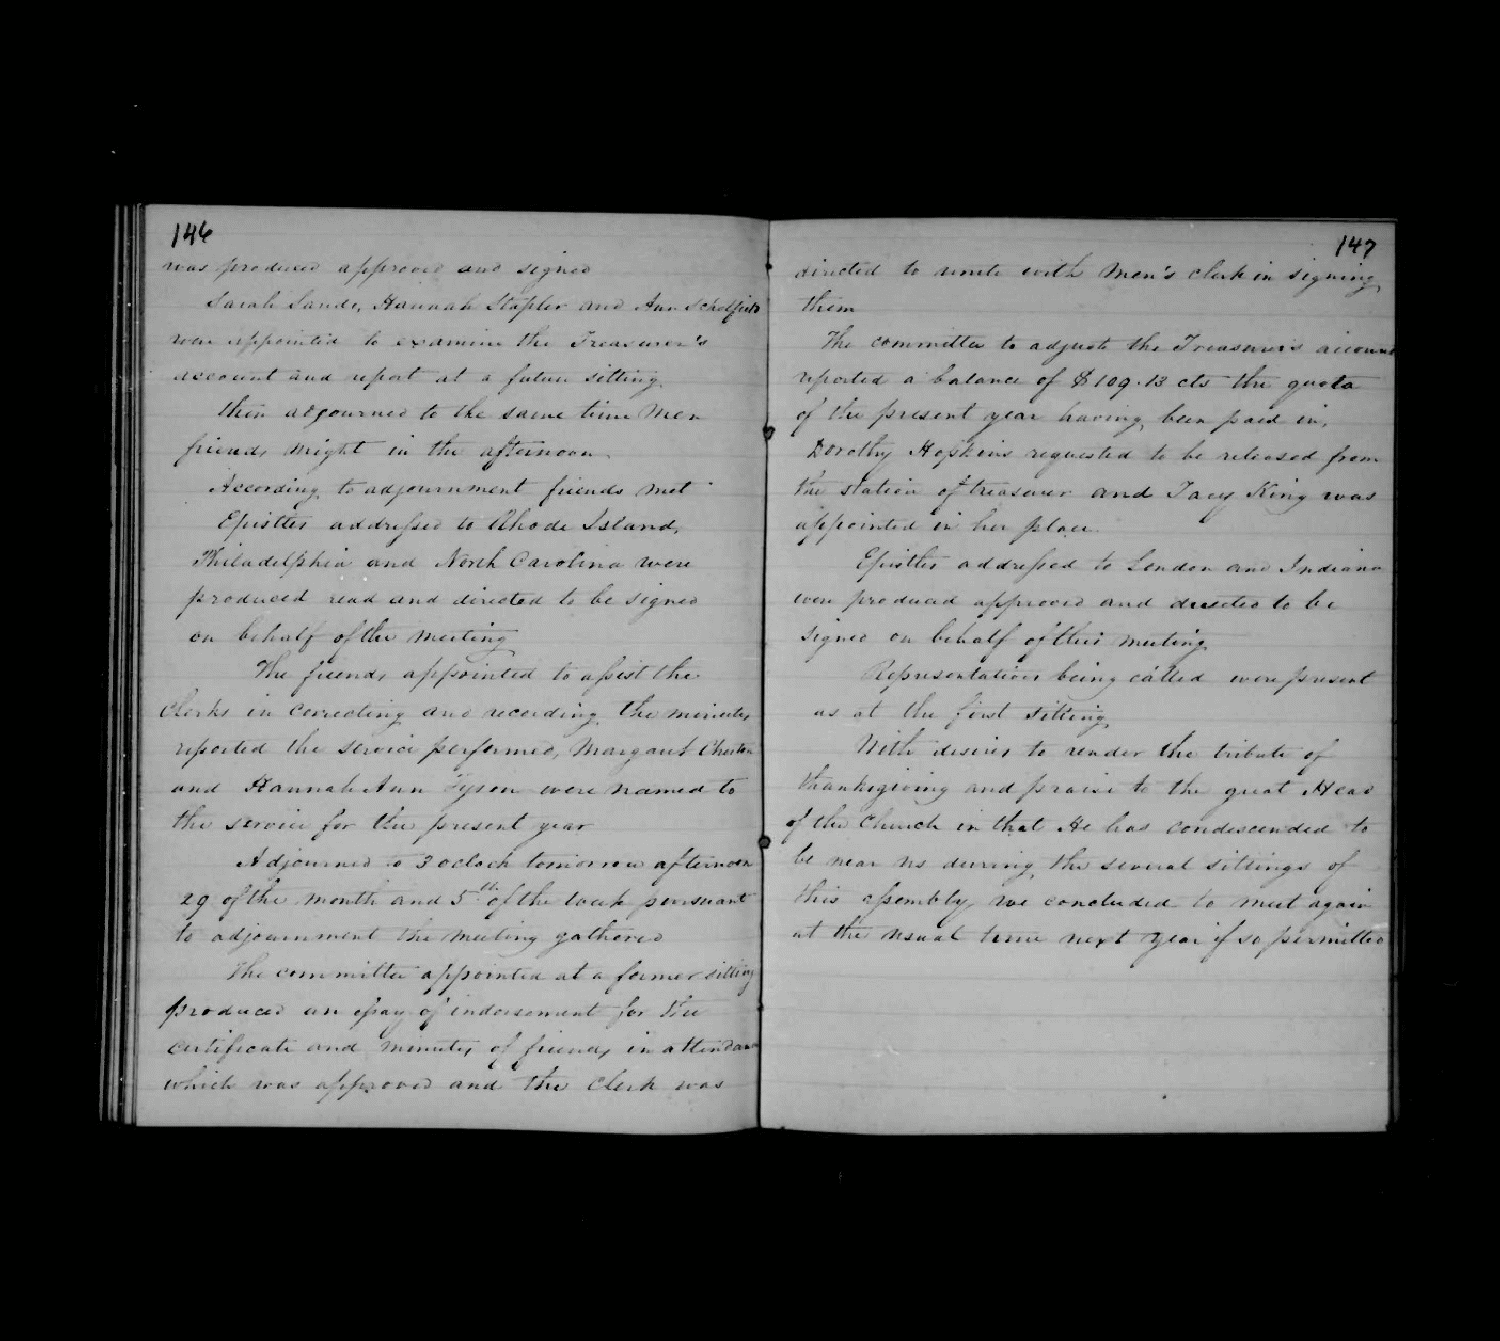 146
was produced approved and signed
Sarah Sands, Hannah Stapler and Ann Scholfield
were appointed to examine the Treasurer's
account and report at a future sitting.
then adjourned to the same time Men
friends might in the afternoon.
According to adjournment friends met
Epistles addressed to Rhode Island,
Philadelphia and North Carolina were
produced read and directed to be signed
on behalf of the meeting
The friends appointed to assist the
Clerks in correcting and recording the minutes
reported the service performed, Margaret
and Hannah Ann Tyson were named to
the service for the present year
Adjourned to 3 oclock tomorrow afternoon
29 of the month and 5th of the week pursuant
to adjournment the meeting gathered
The committee appointed at a former sitting
produced an essay of indorsement for the
certificate and minutes of friends in attendance
which was approved and the Clerk was
147
directed to unite with Men's clerk in signing
them
The committee to adjust the Treasurer's account
reported a balance of $109.13 cts the quota
of the present year having been paid in.
Dorothy Hopkins requested to be released from
the station of treasurer and Tacy King was
appointed in her place.
Epistles addressed to London and Indiana
were produced approved and directed to be
signed on behalf of this meeting
Representatives being called were present
as at the first sitting
With desires to render the tribute of
thanksgiving and praise to the great Head
of the Church in that He has condescended to
be near us during the several sittings of
this assembly we concluded to meet again
at the usual time next year if so permitted